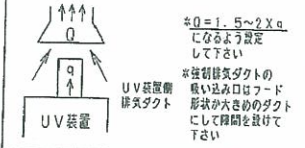 Q
q
UV装置側
排気ダクト
UV装置
※Q=1.5~2×q
になるよう設定
して下さい
※強制排気ダクトの
吸い込み口はフード
形状か大きめのダクト
にして隙間を設けて
下さい